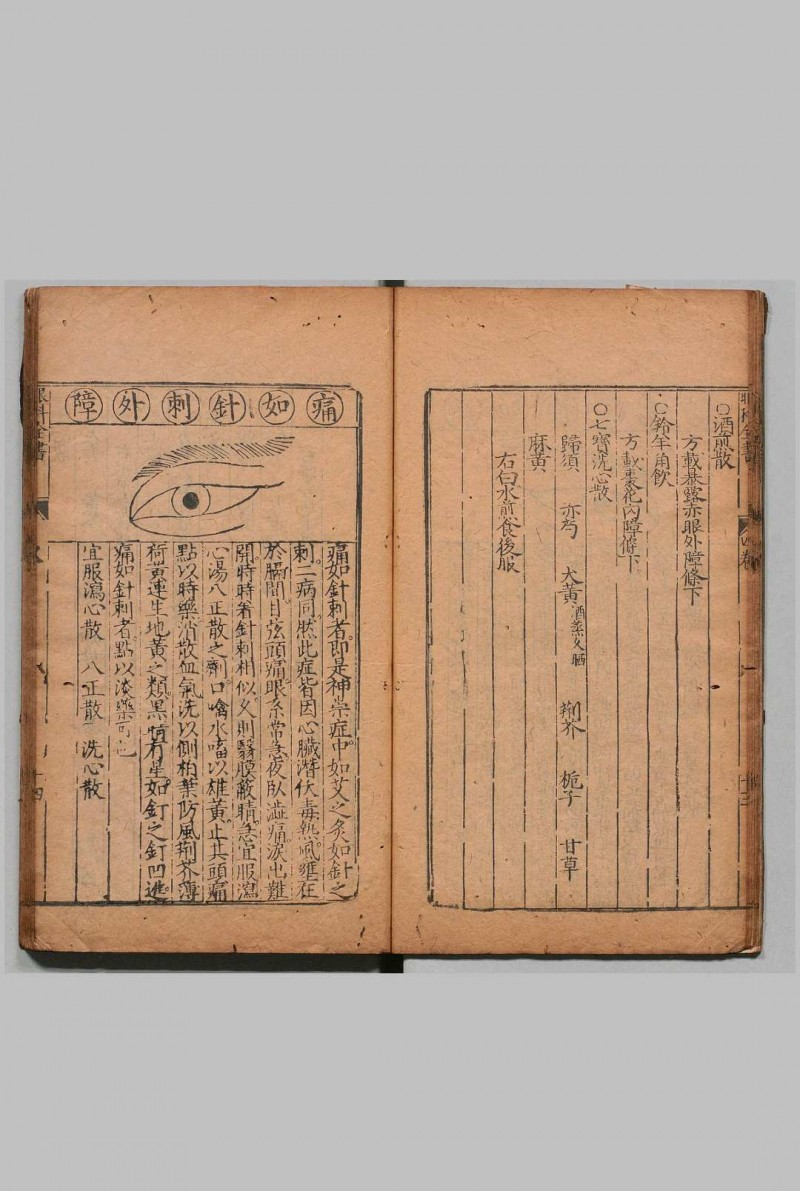 〇酒煎散
方載暴露赤眼外障條下
〇鈴羊角飲
方載棗花內障條下
〇七寶洗心散
歸須 赤芍 大黃酒蒸久晒 荆芥 梔子 甘草
麻黃
右白水煎食後服
四卷
痛如針刺外障
痛如針刺者。即是神祟症中。如艾之灸如針之
刺。二病同。然此症皆因心臟潛伏毒熱。風壅在
於膈間。目弦頭痛。眼系常急。夜臥澁痛。淚出難
開。時時若針刺相似。久則翳膜蔽睛。急宜服瀉
心湯八正散之劑。口噙水㗜以雄黃。止其頭痛
點以時藥。消散血氣。洗以側柏葉防風荆芥薄
荷黃連生地黃之類。黑睛有星。如釘之釘凹進。
痛如針刺者。點以淡藥可也
宜服瀉心散 八正散 洗心散
眼科全書
十四